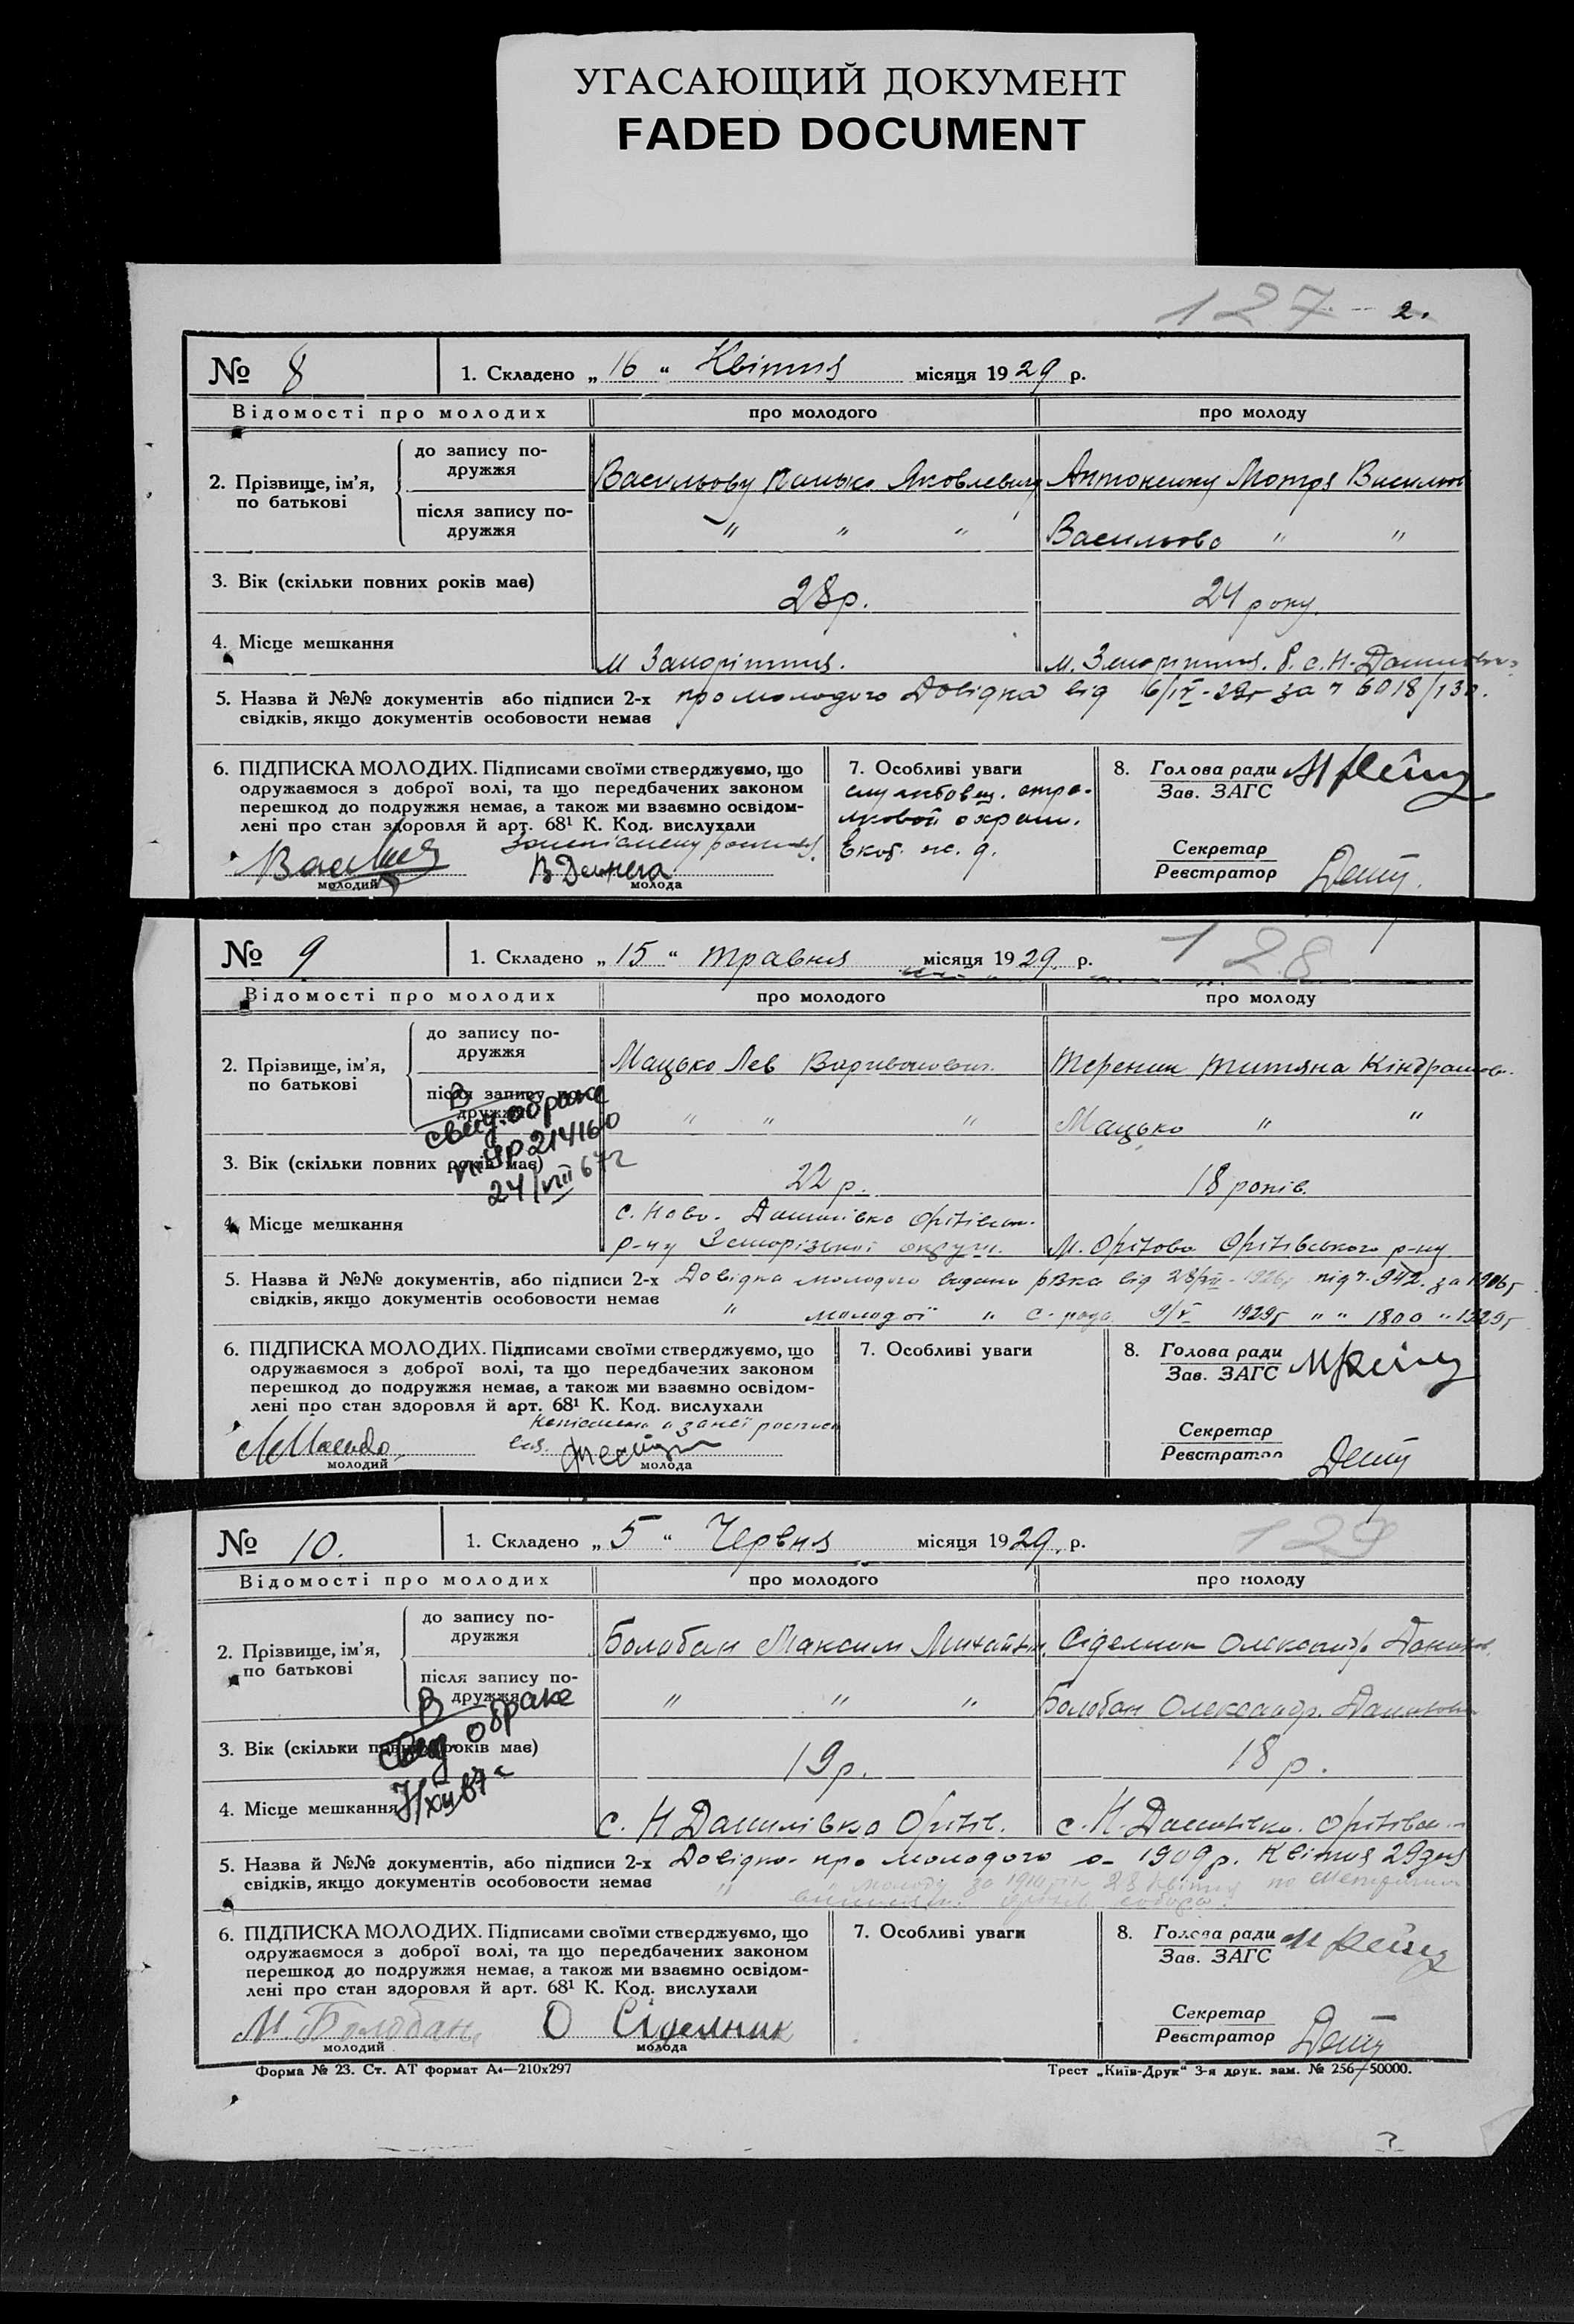 УГАСАЮЩИЙ ДОКУМЕНТ
FADED DOCUMENT
127 2.
№ 8 1. Складено „16“ Квітня місяця 1929 р.
Відомості про молодих про молодого про молоду
2. Прізвище, ім’я, по батькові
до запису по-
дружжя
Васильову Панько Яковлевич Антоненку Мотря Васильов
після запису по-
дружжя
" " " Васильова " "
3. Вік (скільки повних років має) 28р. 24 року.
4. Місце мешкання м Запоріжжя. м. Запоріжжя.
5. Назва й №№ документів або підписи 2-х про молодого Довідка від 6/IV-29г за ч 6018/13
свідків, якщо документів особовости немає
6. ПІДПИСКА МОЛОДИХ. Підписами своїми стверджуємо, що
одружаємося з доброї волі, та що передбачених законом
перешкод до подружжя немає, а також ми взаємно освідом-
лені про стан здоровля й арт. 68¹ К. Код. вислухали
молодий молода
7. Особливі уваги
охрани.
8. Голова ради
Зав. ЗАГС
Секретар
Реєстратор
№ 9 1. Складено „15“ травня місяця 1929 р. 128
Відомості про молодих про молодого про молоду
2. Прізвище, ім’я, по батькові
до запису по-
дружжя
Мацько Лев Тереник Титяна Кіндратов.
після запису по-
дружжя
" " " Мацько " "
В
свид. о браке
214160
24/VIII 67г
3. Вік (скільки повних років має) 22 р. 18 років.
4. Місце мешкання с. Ново-Данилівка Оріхівськ.
р-ну Запорізької округи. м. Оріхово Оріхівського р-ну
5. Назва й №№ документів, або підписи 2-х Довідка молодого видано від під ч. 942. за 1906г
свідків, якщо документів особовости немає " молодої " 9/V 1929г " " 1800 " 1929г
6. ПІДПИСКА МОЛОДИХ. Підписами своїми стверджуємо, що
одружаємося з доброї волі, та що передбачених законом
перешкод до подружжя немає, а також ми взаємно освідом-
лені про стан здоровля й арт. 68¹ К. Код. вислухали
молодий молода
7. Особливі уваги
8. Голова ради
Зав. ЗАГС
Секретар
Реєстратор
№ 10. 1. Складено „5“ Червня місяця 1929. р. 129
Відомості про молодих про молодого про молоду
2. Прізвище, ім’я, по батькові
до запису по-
дружжя
Болобан Максим Михайлов. Сіделник Олександр.
після запису по-
дружжя
" " " Болобан Олександр.
В
свид. о браке
3. Вік (скільки повних років має) 19р. 18 р.
4. Місце мешкання с. Н Данилівка Оріхів. с. Н. Данилівка.
5. Назва й №№ документів, або підписи 2-х Довідка про молодого 1909р. Квітня 29дня
свідків, якщо документів особовости немає " молоду за 1910 рік 28 квітня по
6. ПІДПИСКА МОЛОДИХ. Підписами своїми стверджуємо, що
одружаємося з доброї волі, та що передбачених законом
перешкод до подружжя немає, а також ми взаємно освідом-
лені про стан здоровля й арт. 68¹ К. Код. вислухали
М. Болобан. О Сіделник
молодий молода
7. Особливі уваги
8. Голова ради
Зав. ЗАГС
Секретар
Реєстратор
Форма № 23. Ст. АТ формат А4—210x297 Трест „Київ-Друк“ 3-я друк. зам. № 256—50000.